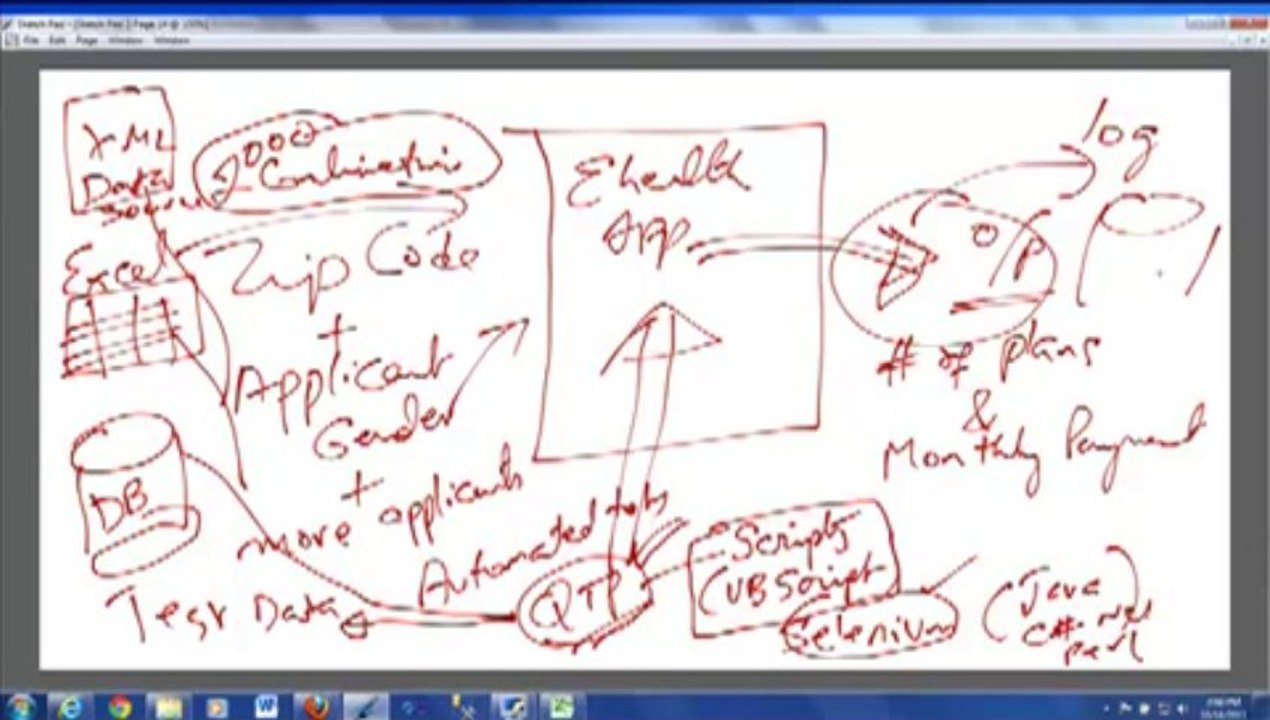 File Edit Page Window
XML
Data
Source
2000
Combinations
Excel
Zip Code
+
Applicant
Gender
+
more applicants
DB
Test Data
Ehealth
App
Automated tests
QTP
Scripts
(VB Script
Selenium
(Java
C# .net
perl
log
O/P
# of plans
&
Monthly Payment